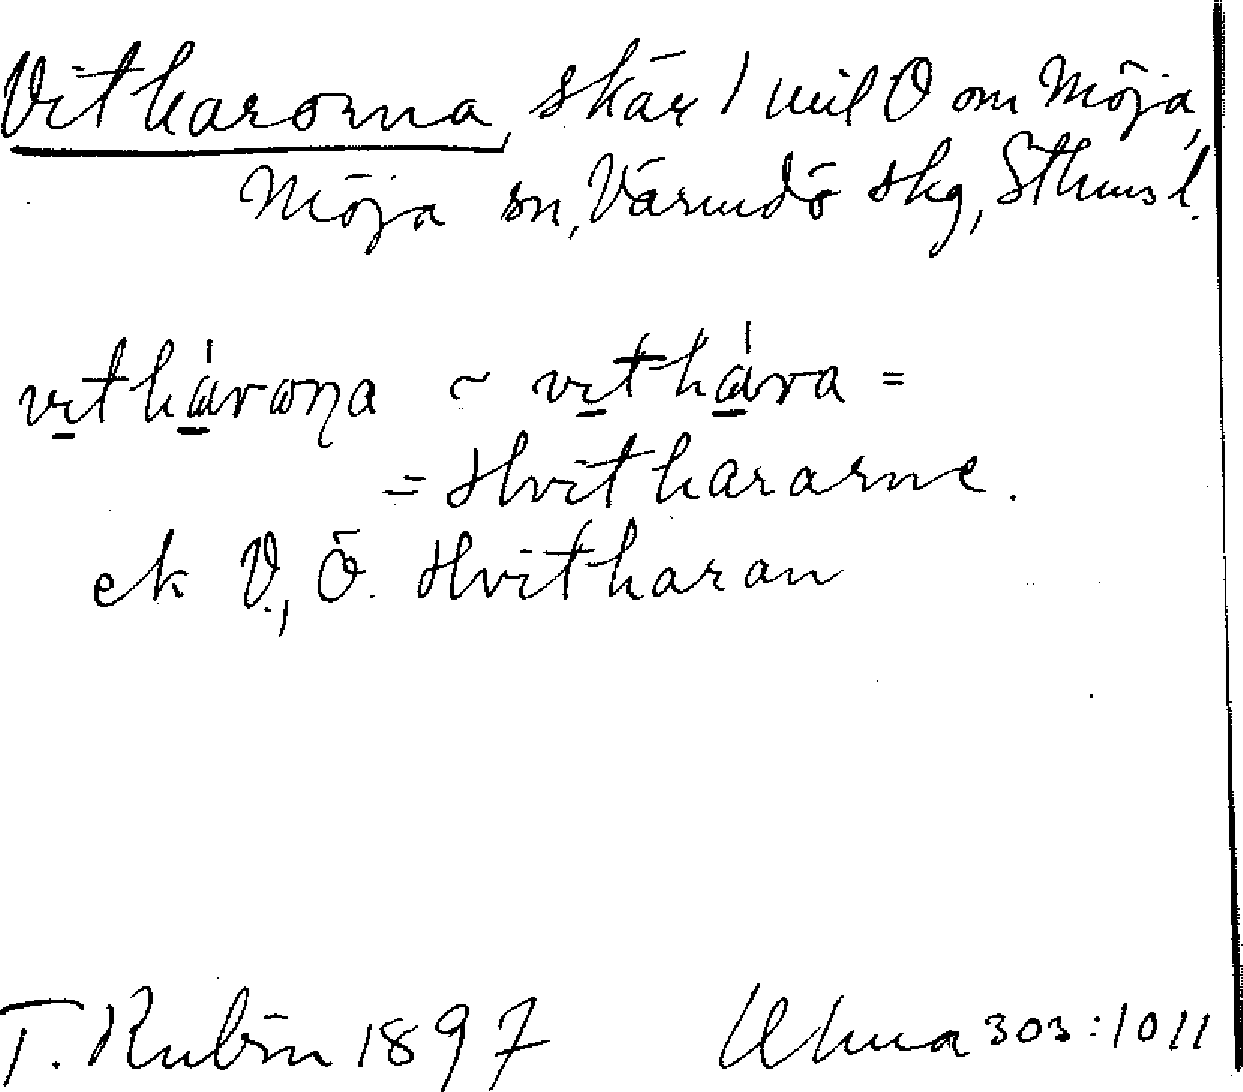 Vitkarorna, skär 1 mil O om Möja,
Möja sn, Värmdö skg, Sthms l.
= Hvitkararne.
ek V., Ö. Hvitkaran
T. Rubin 1897 Uma 303:1011